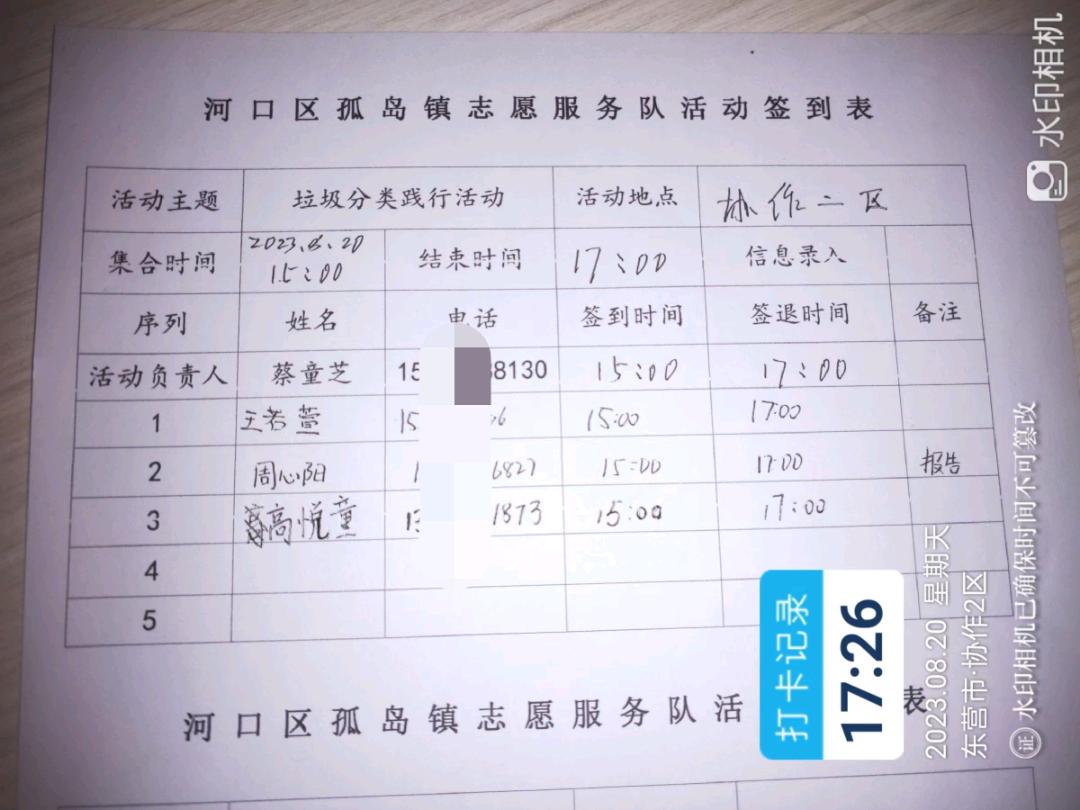 河口区孤岛镇志愿服务队活动签到表
活动主题 垃圾分类践行活动 活动地点 协作二区
集合时间 2023.8.20 15:00 结束时间 17:00 信息录入
序列 姓名 电话 签到时间 签退时间 备注
活动负责人 蔡童芝 15 8130 15:00 17:00
1 王若萱 15 6 15:00 17:00
2 周心阳 1 6827 15:00 17:00 报告
3 高悦童 13 1873 15:00 17:00
4
5
河口区孤岛镇志愿服务队活 表
打卡记录
17:26
2023.08.20 星期天
东营市·协作2区
证 水印相机已确保时间不可篡改
水印相机